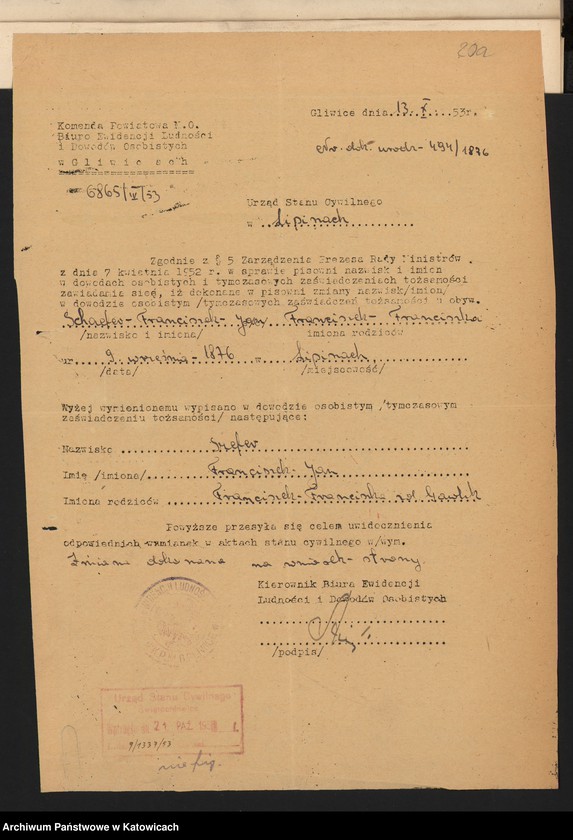 20a
Gliwice dnia 13. X. 53r.
Komenda Powiatowa M.O.
Biuro Ewidencji Ludności
i Dowodów Osobistych
w Gliwicach
Nr. dok. urodz. 494/1876
6865/IV/53
Urząd Stanu Cywilnego
w Lipinach
Zgodnie z § 5 Zarządzenia Prezesa Rady Ministrów
z dnia 7 kwietnia 1952 r. w sprawie pisowni nazwisk i imion
w dowodach osobistych i tymczasowych zaświadczeniach tożsamości
zawiadamia się, iż dokonane w pisowni zmiany nazwisk/imion/
w dowodzie osobistym /tymczasowych zaświadczeń tożsamości u obyw.
Schäfer Franciszek Jan Franciszek Franciszka
/nazwisko i imiona/ imiona rodziców
ur 9 września 1876 w Lipinach
/data/ /miejscowość/
Wyżej wymienionemu wypisano w dowodzie osobistym /tymczasowym
zaświadczeniu tożsamości/ następujące:
Nazwisko Szefer
Imię /imiona/ Franciszek Jan
Imiona rodziców Franciszek Franciszka
Powyższe przesyła się celem uwidocznienia
odpowiednich wzmianek w aktach stanu cywilnego w/wym.
Zmiana dokonana na wniosek strony.
Kierownik Biura Ewidencji
Ludności i Dowodów Osobistych
/podpis/
Urząd Stanu Cywilnego
21 PAŹ 1953
9/1337/53
Archiwum Państwowe w Katowicach